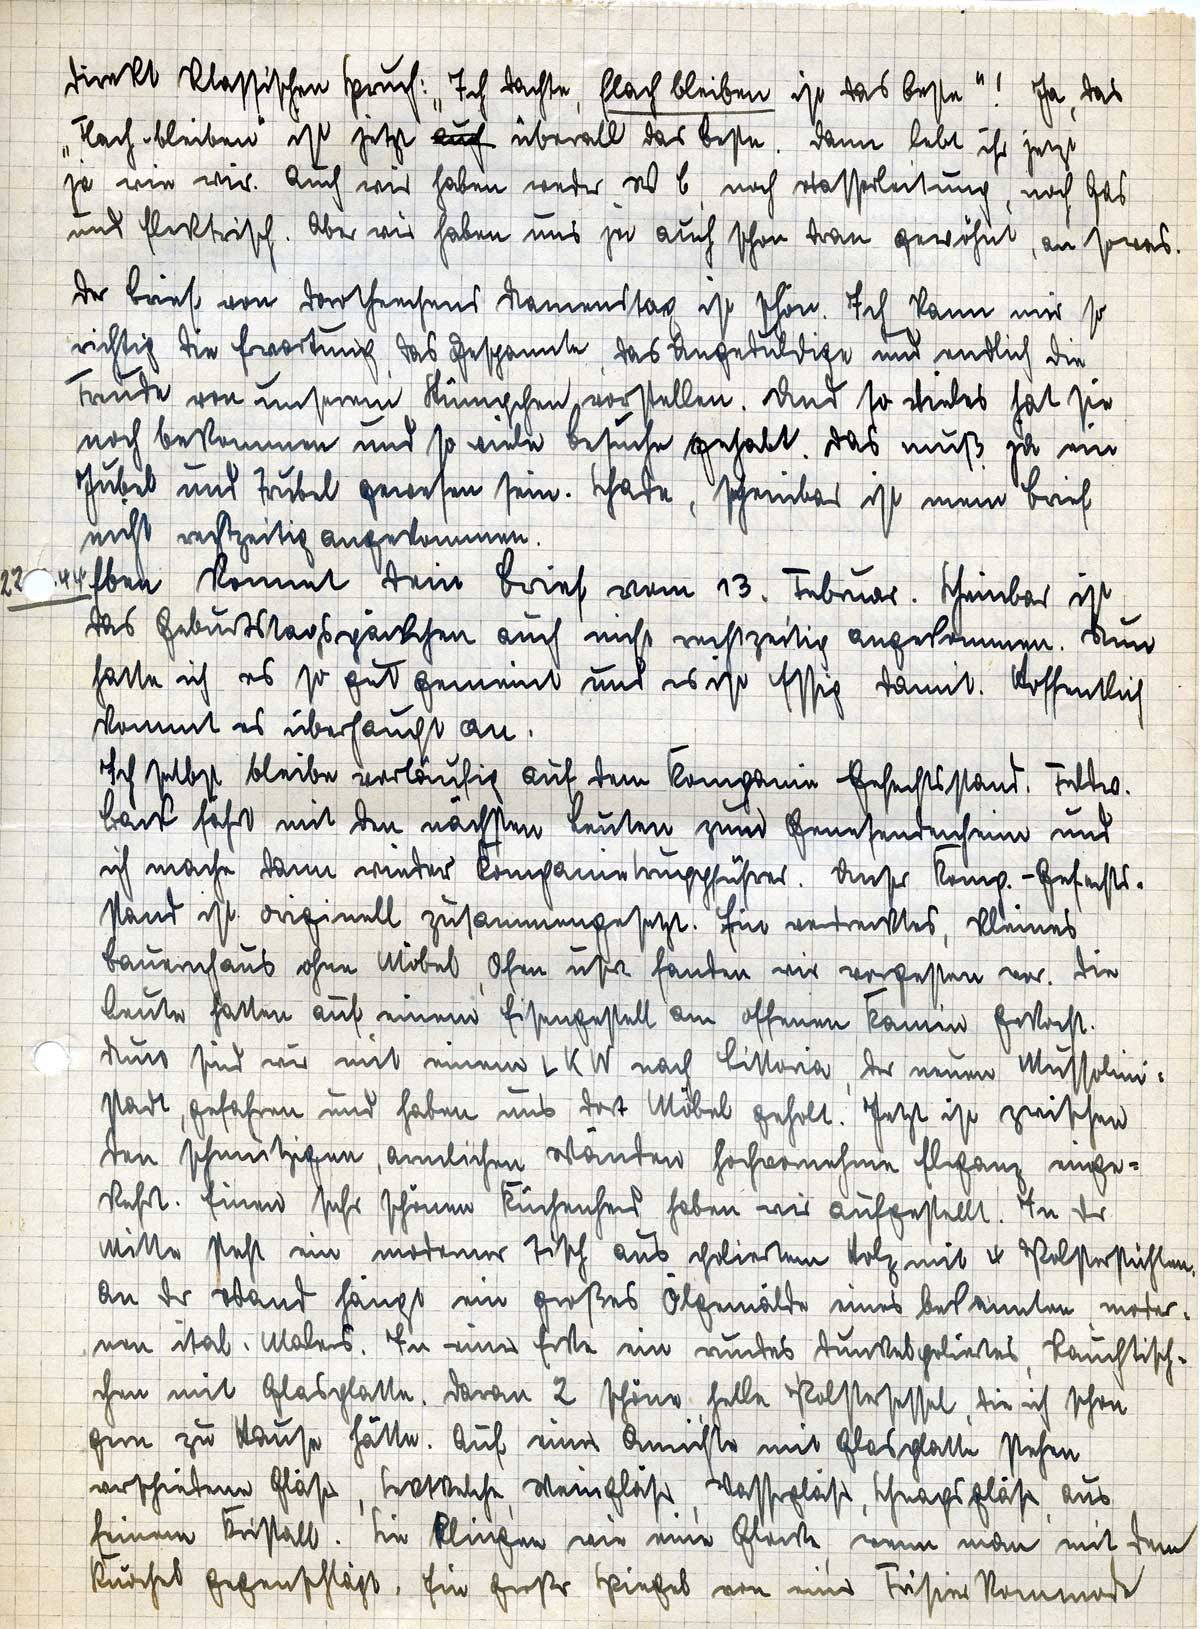 direkt klassischen Spruch: „Ich dachte, flach bleiben ist das beste"! Ja, das
„Flach-bleiben" ist jetzt auch überall das beste. Dann lebt ihr jetzt
ja wie wir. Auch wir haben weder W C, noch Wasserleitung, noch Gas
und Elektrisch. Aber wir haben uns ja auch schon dran gewöhnt, an sowas.
Der Brief von Dorotheechens Namenstag ist schön. Ich kann mir so
richtig die Erwartung, das Gespannte, das Ungeduldige und endlich die
Freude von unserem vorstellen. Und so vieles hat sie
noch bekommen und so viele Besuche gehabt. Das muß ja ein
Jubel und Trubel gewesen sein. Schade, scheinbar ist mein Brief
nicht rechtzeitig angekommen.
22 .44 Eben kommt Dein Brief vom 13. Februar. Scheinbar ist
das Geburtstagspäckchen auch nicht rechtzeitig angekommen. Nun
hatte ich es so gut gemeint und es ist Essig damit. Hoffentlich
kommt es überhaupt an.
Ich selbst bleibe vorläufig auf dem Kompanie-Gefechtsstand. Feldw.
fährt mit den nächsten Leuten zum Genesendenheim und
ich mache dann wieder Kompanietruppführer. Unser Komp.-Gefechts-
stand ist originell zusammengesetzt. Ein verdrecktes, kleines
Bauernhaus ohne Möbel, Ofen usw. fanden wir vorgestern vor. Die
Leute hatten auf einem Eisengestell am offenen Kamin gekocht.
Nun sind wir mit einem LKW nach Littoria, der neuen Mussolini-
stadt, gefahren und haben uns dort Möbel geholt. Jetzt ist zwischen
den schmutzigen, ärmlichen Wänden hochvornehme Eleganz einge-
kehrt. Einen sehr schönen Küchenherd haben wir aufgestellt. In der
Mitte steht ein moderner Tisch aus poliertem Holz mit 4 Polsterstühlen.
An der Wand hängt ein großes Ölgemälde eines bekannten, moder-
nen ital. Malers. In einer Ecke ein rundes dunkelpoliertes Rauchtisch-
chen mit Glasplatte. Daran 2 schöne helle Polstersessel, die ich schon
gern zu Hause hätte. Auf einer Anrichte mit Glasplatte stehen
verschiedene Gläser, Sektkelche, Weingläser, Wassergläser, Schnapsgläser aus
feinem Kristall. Sie klingen wie eine Glocke, wenn man mit dem
Knöchel gegenschlägt. Ein großer Spiegel von einer Frisierkommode